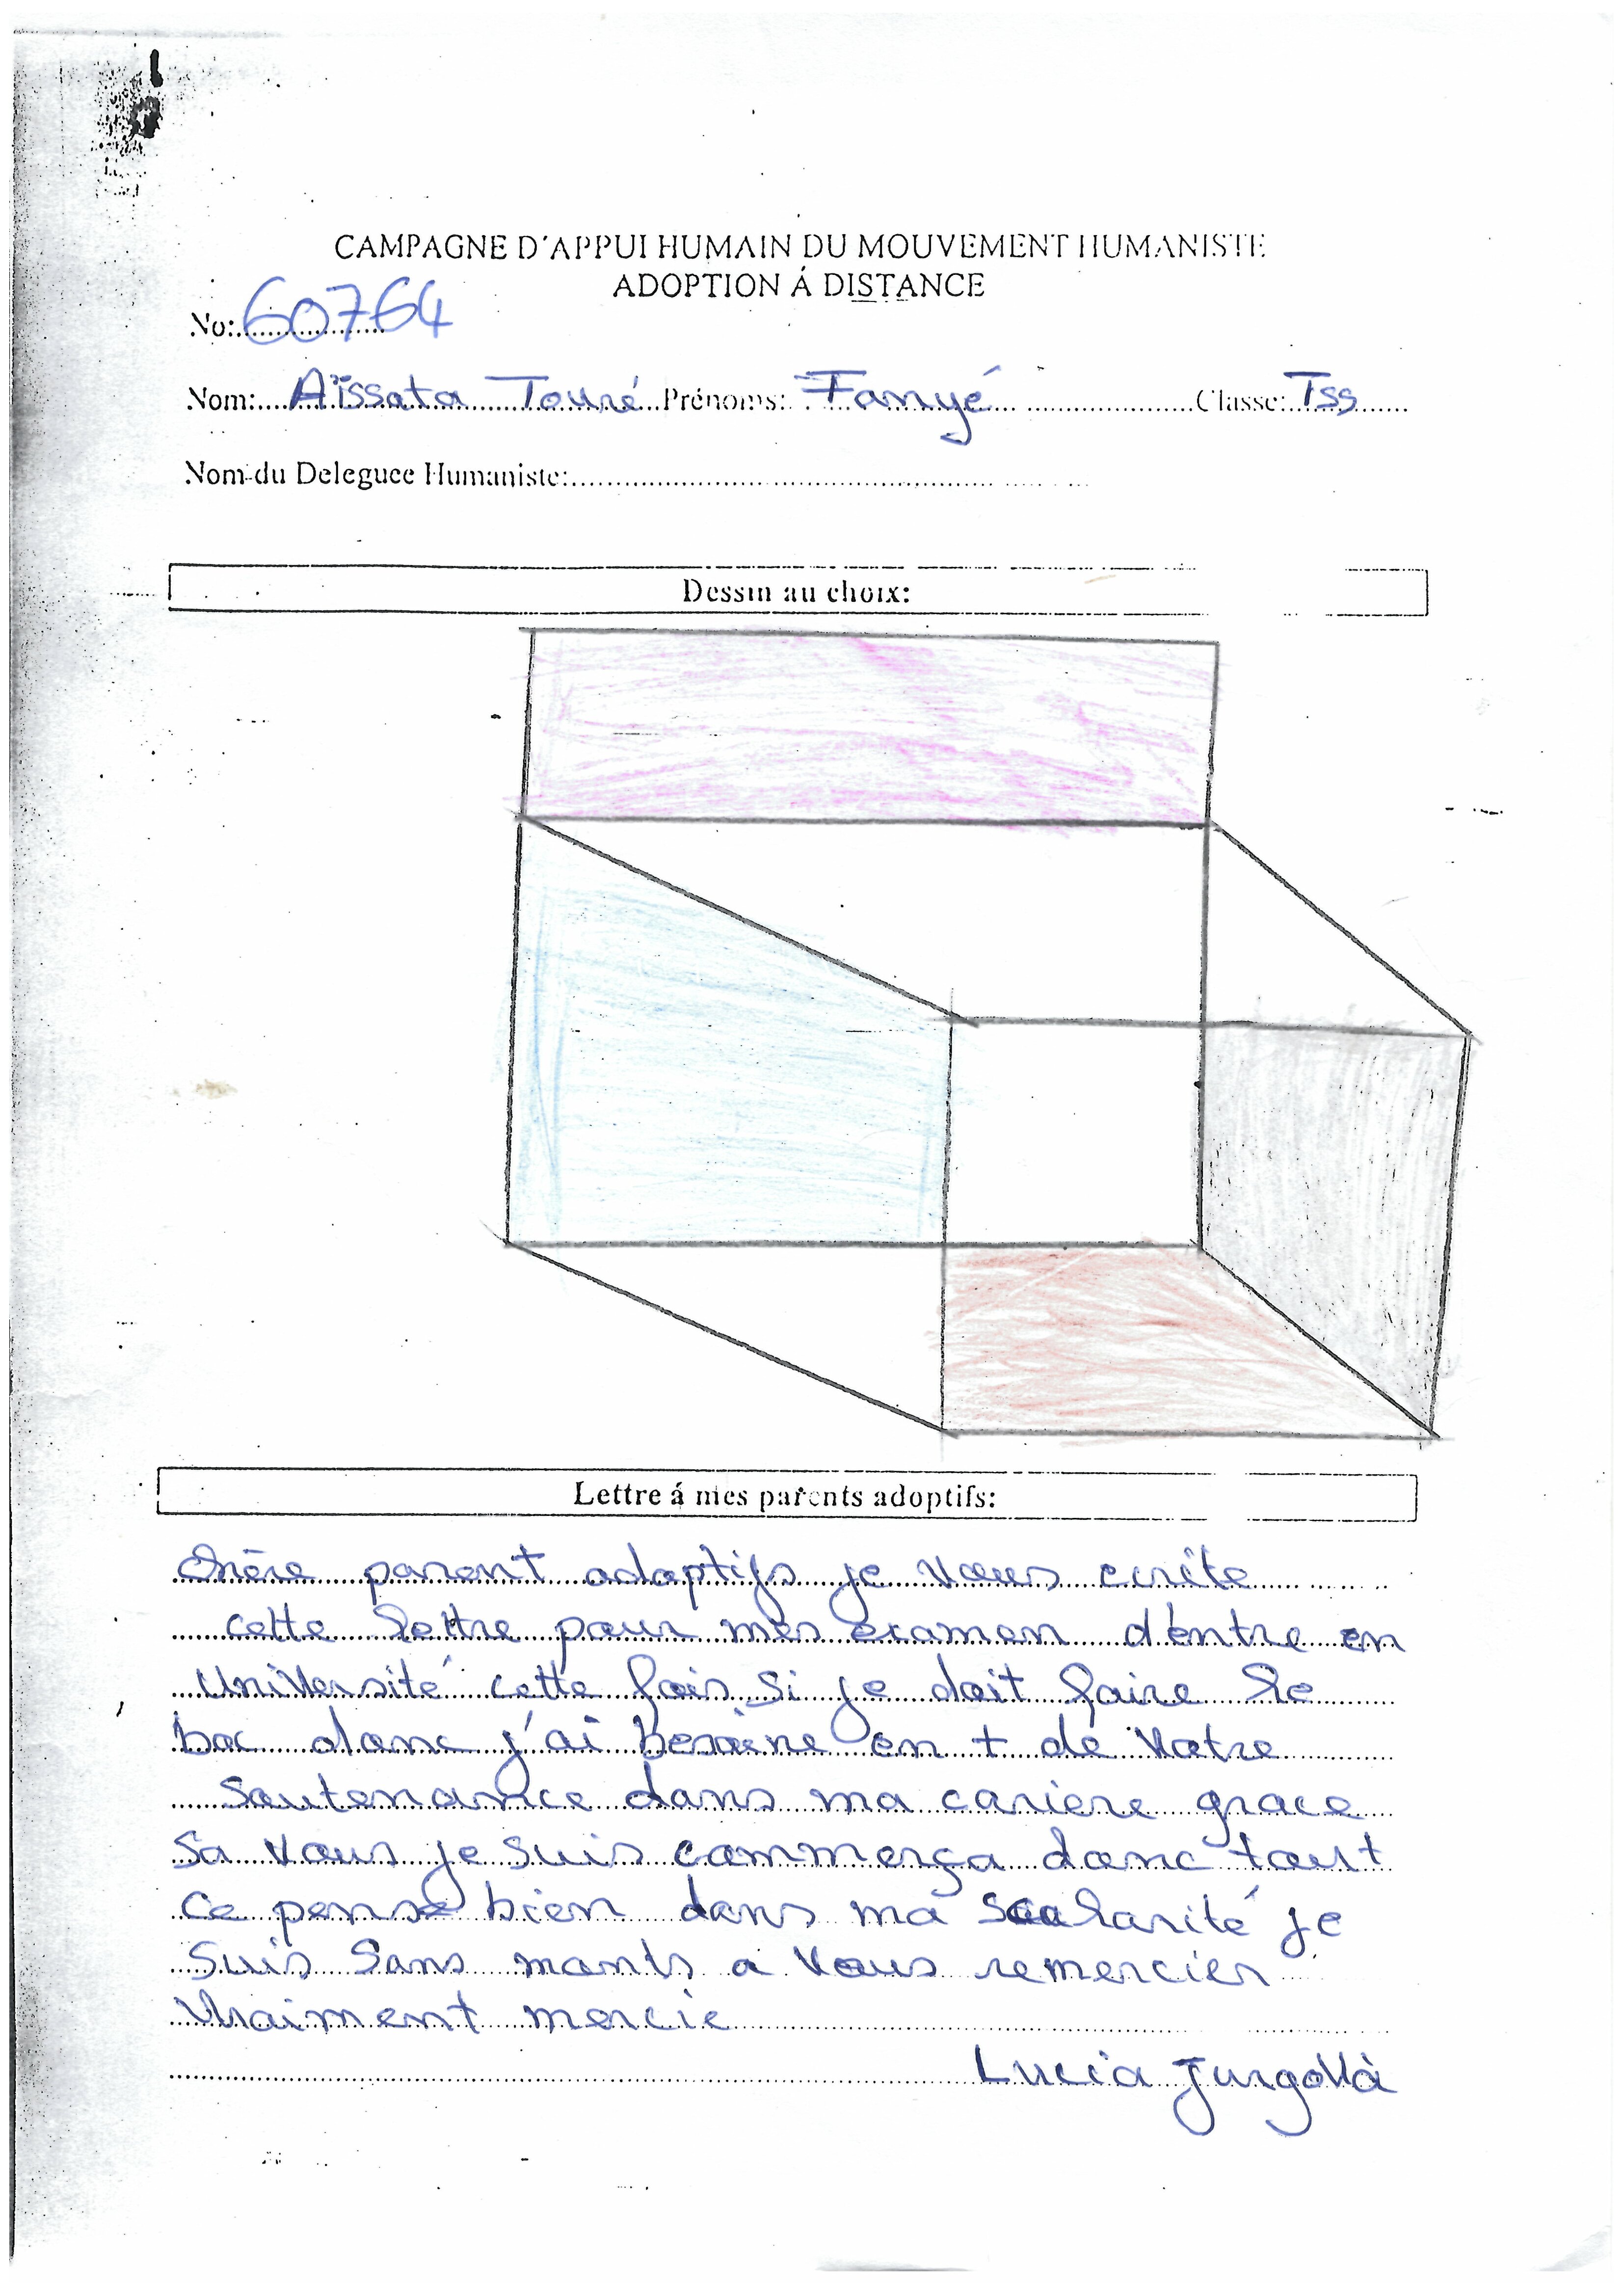 CAMPAGNE D'APPUI HUMAIN DU MOUVEMENT HUMANISTE
ADOPTION Á DISTANCE
No: 60764
Nom: Aïssata Touré Prénoms: Fanyé Classe: Tss
Nom du Deleguee Humaniste:
Dessin au choix:
Lettre á mes parents adoptifs:
Chère parent adoptifs je vous ecrite
cette lettre pour mes examen d'entre en
Université cette fois si je doit faire le
bac donc j'ai besoine en + de votre
soutenance dans ma cariere grace
sa vous je suis commerça donc tout
ce pense bien dans ma scolarité je
suis sans mants a vous remercier
Vraiment mercie
Lucia